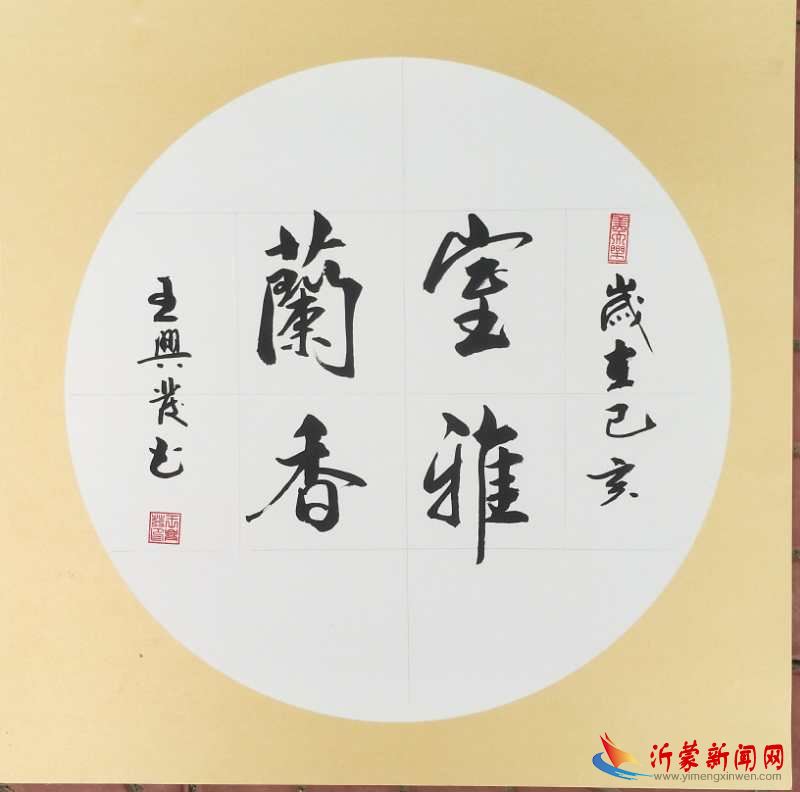 歲在己亥
室雅
蘭香
王興發书
沂蒙新闻网
www.yimengxinwen.com